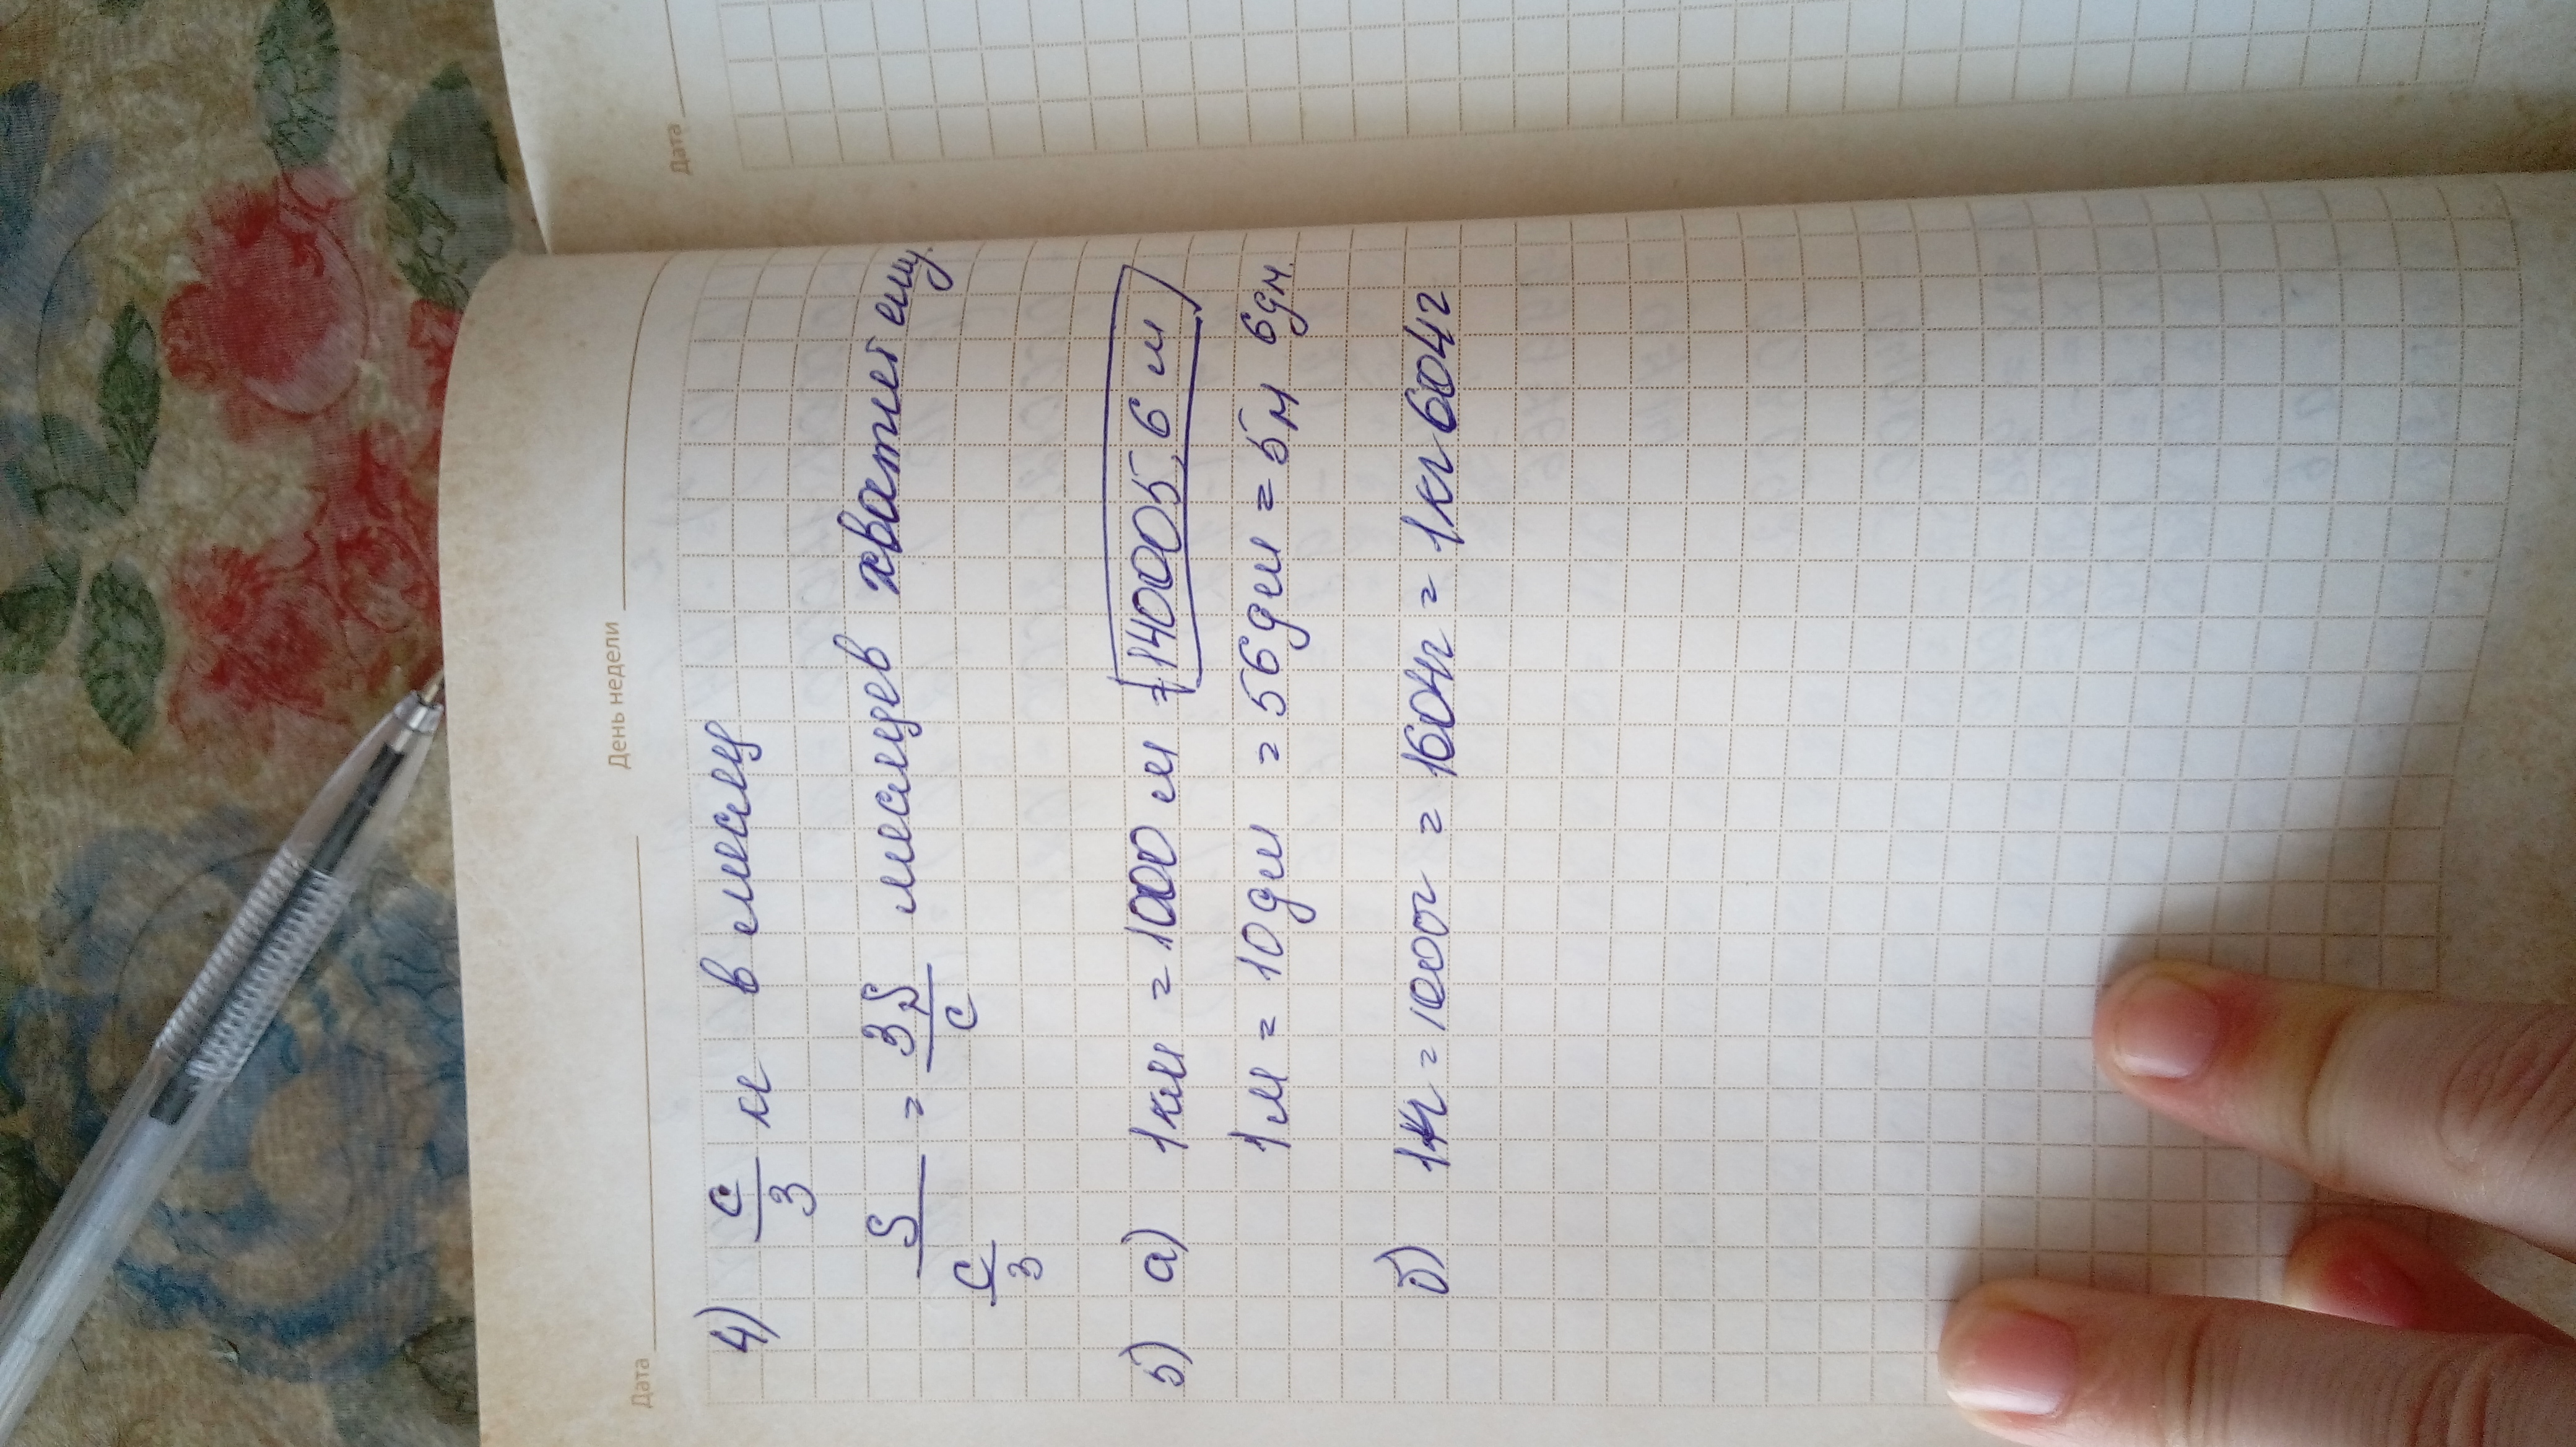 Дата День недели
4) c/3 м в месяц
S/(c/3) = 3S/c месяцев хватит ему.
5) а) 1 км = 1000 м = 14000 5,6 м
1 м = 10 дм = 56 дм = 5 м 6 дм.
б) 1 кг = 1000 г = 1604 г = 1 кг 604 г
Дата